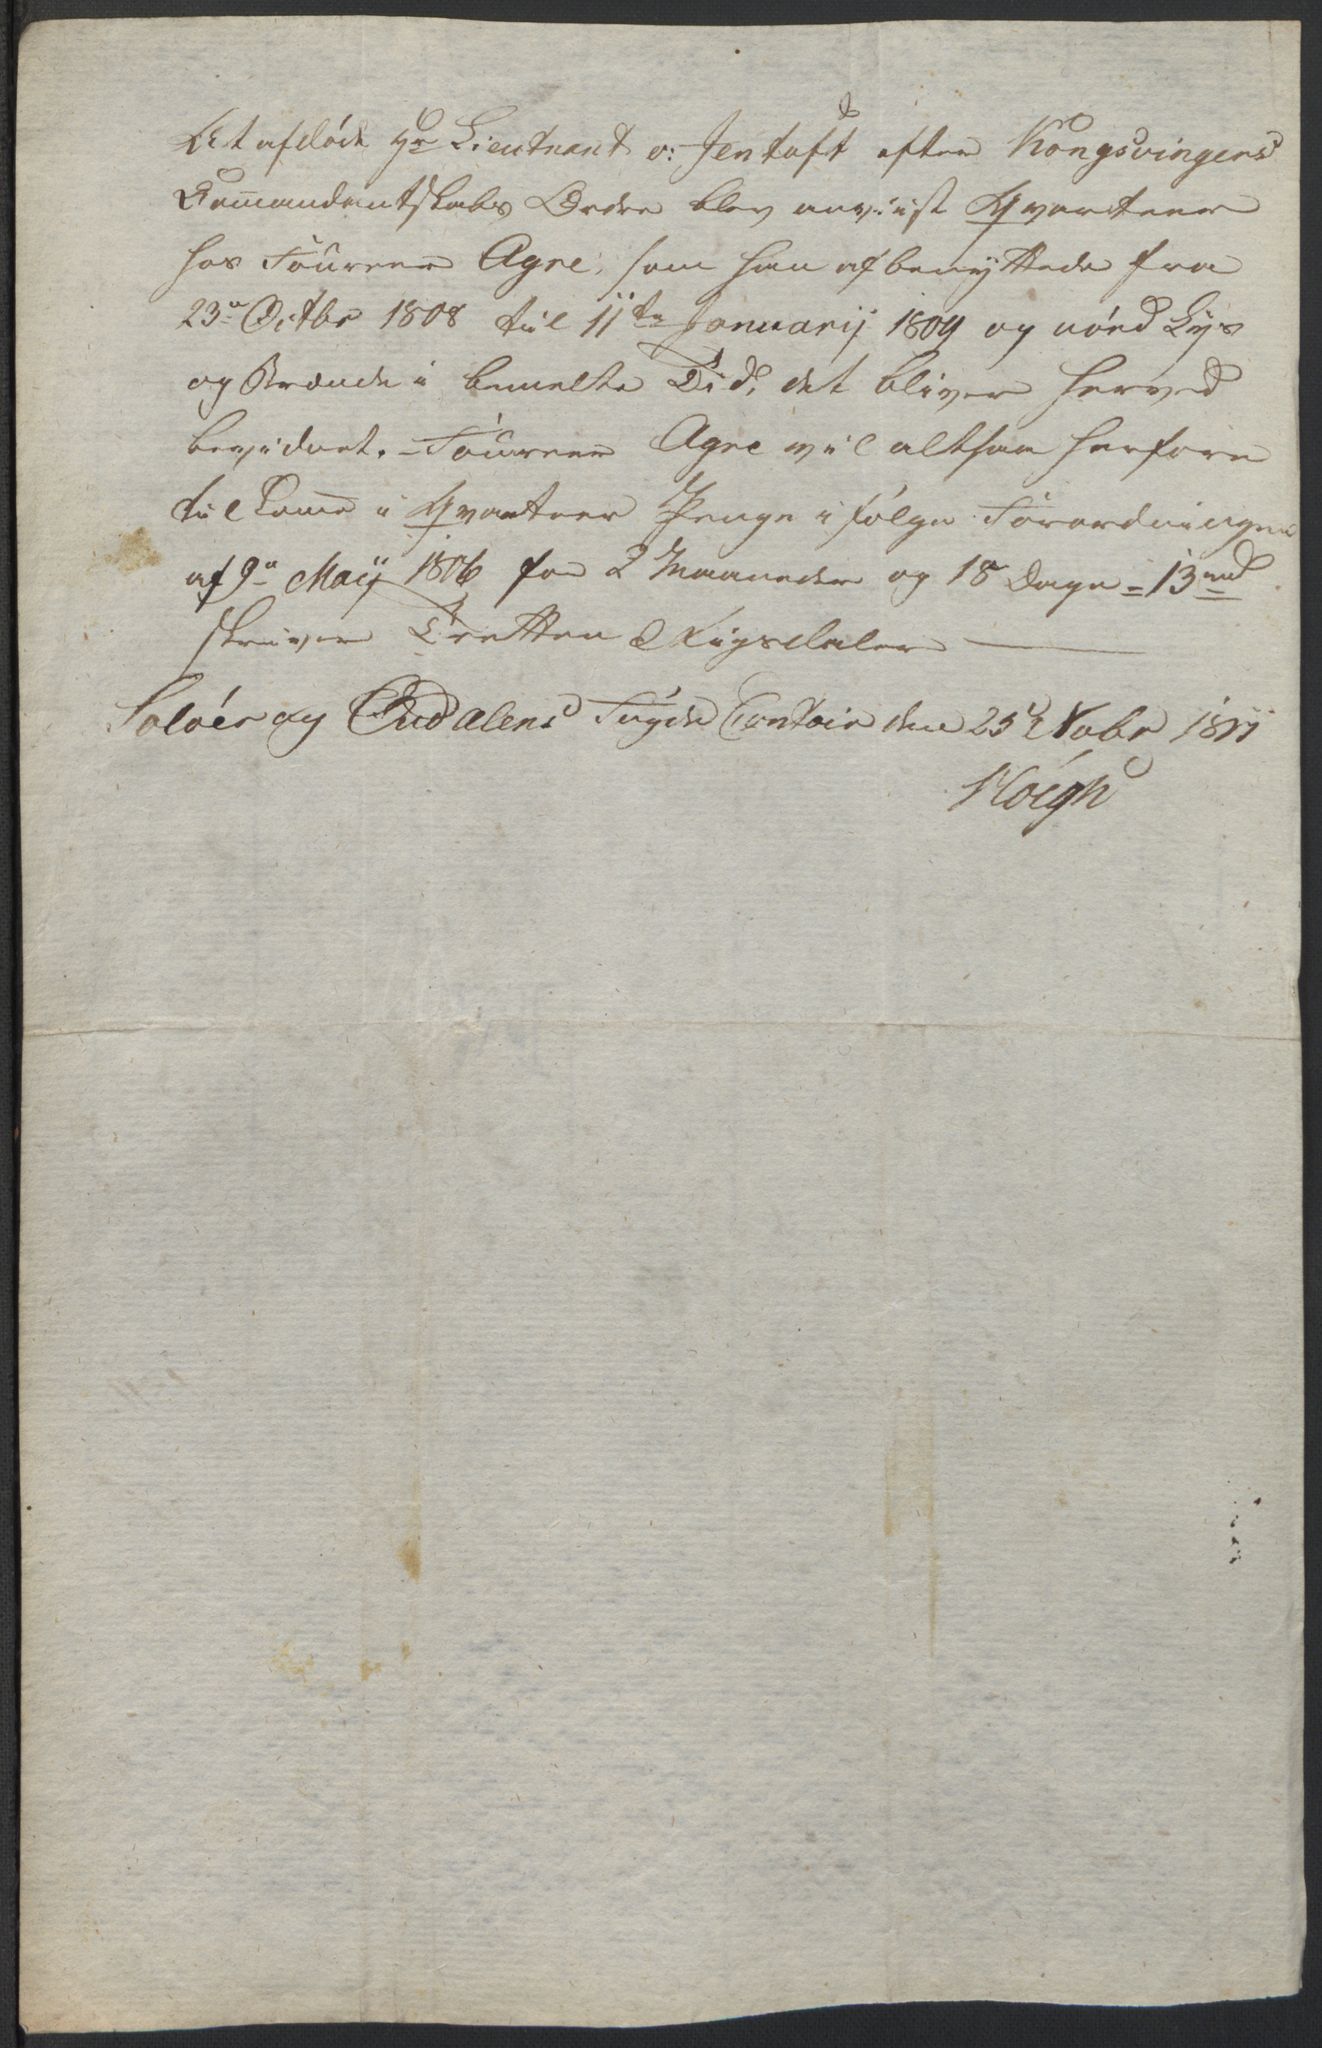 At afdöde Hr Lieutnant v: Jentoft efter Kongsvingers
Commandantskabs Ordre blev anviist Qvarteer
hos Foureer Agre, som han afbenyttede fra
23de Octbr 1808 til 11te Januarij 1809 og nöed Lys
og Brænde i bemelte Tid, det bliver herved
bevidnet. - Foureer Agre vil altsaa herfore
til Komme i Qvarteer Penge i fölge Forordningen
af 9de Maij 1806 for 2 Maaneder og 18 Dage = 13 rd
skriver Tretten Rigsdaler
Soloer og Oudalens Fogde Contoir den 25de Novbr 1811
Höegh